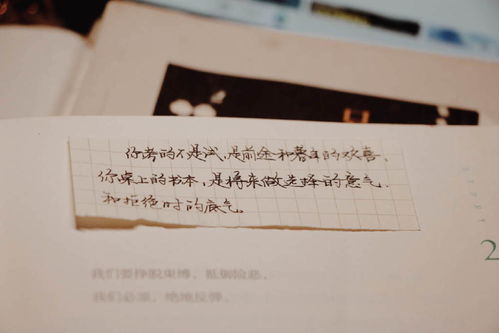 你考的不是试，是前途和暮年的欢喜，
你桌上的书本，是将来做选择的意气，
和拒绝时的底气。
我们要挣脱束缚，抵御险恶，
我们必须，绝地反弹。
2